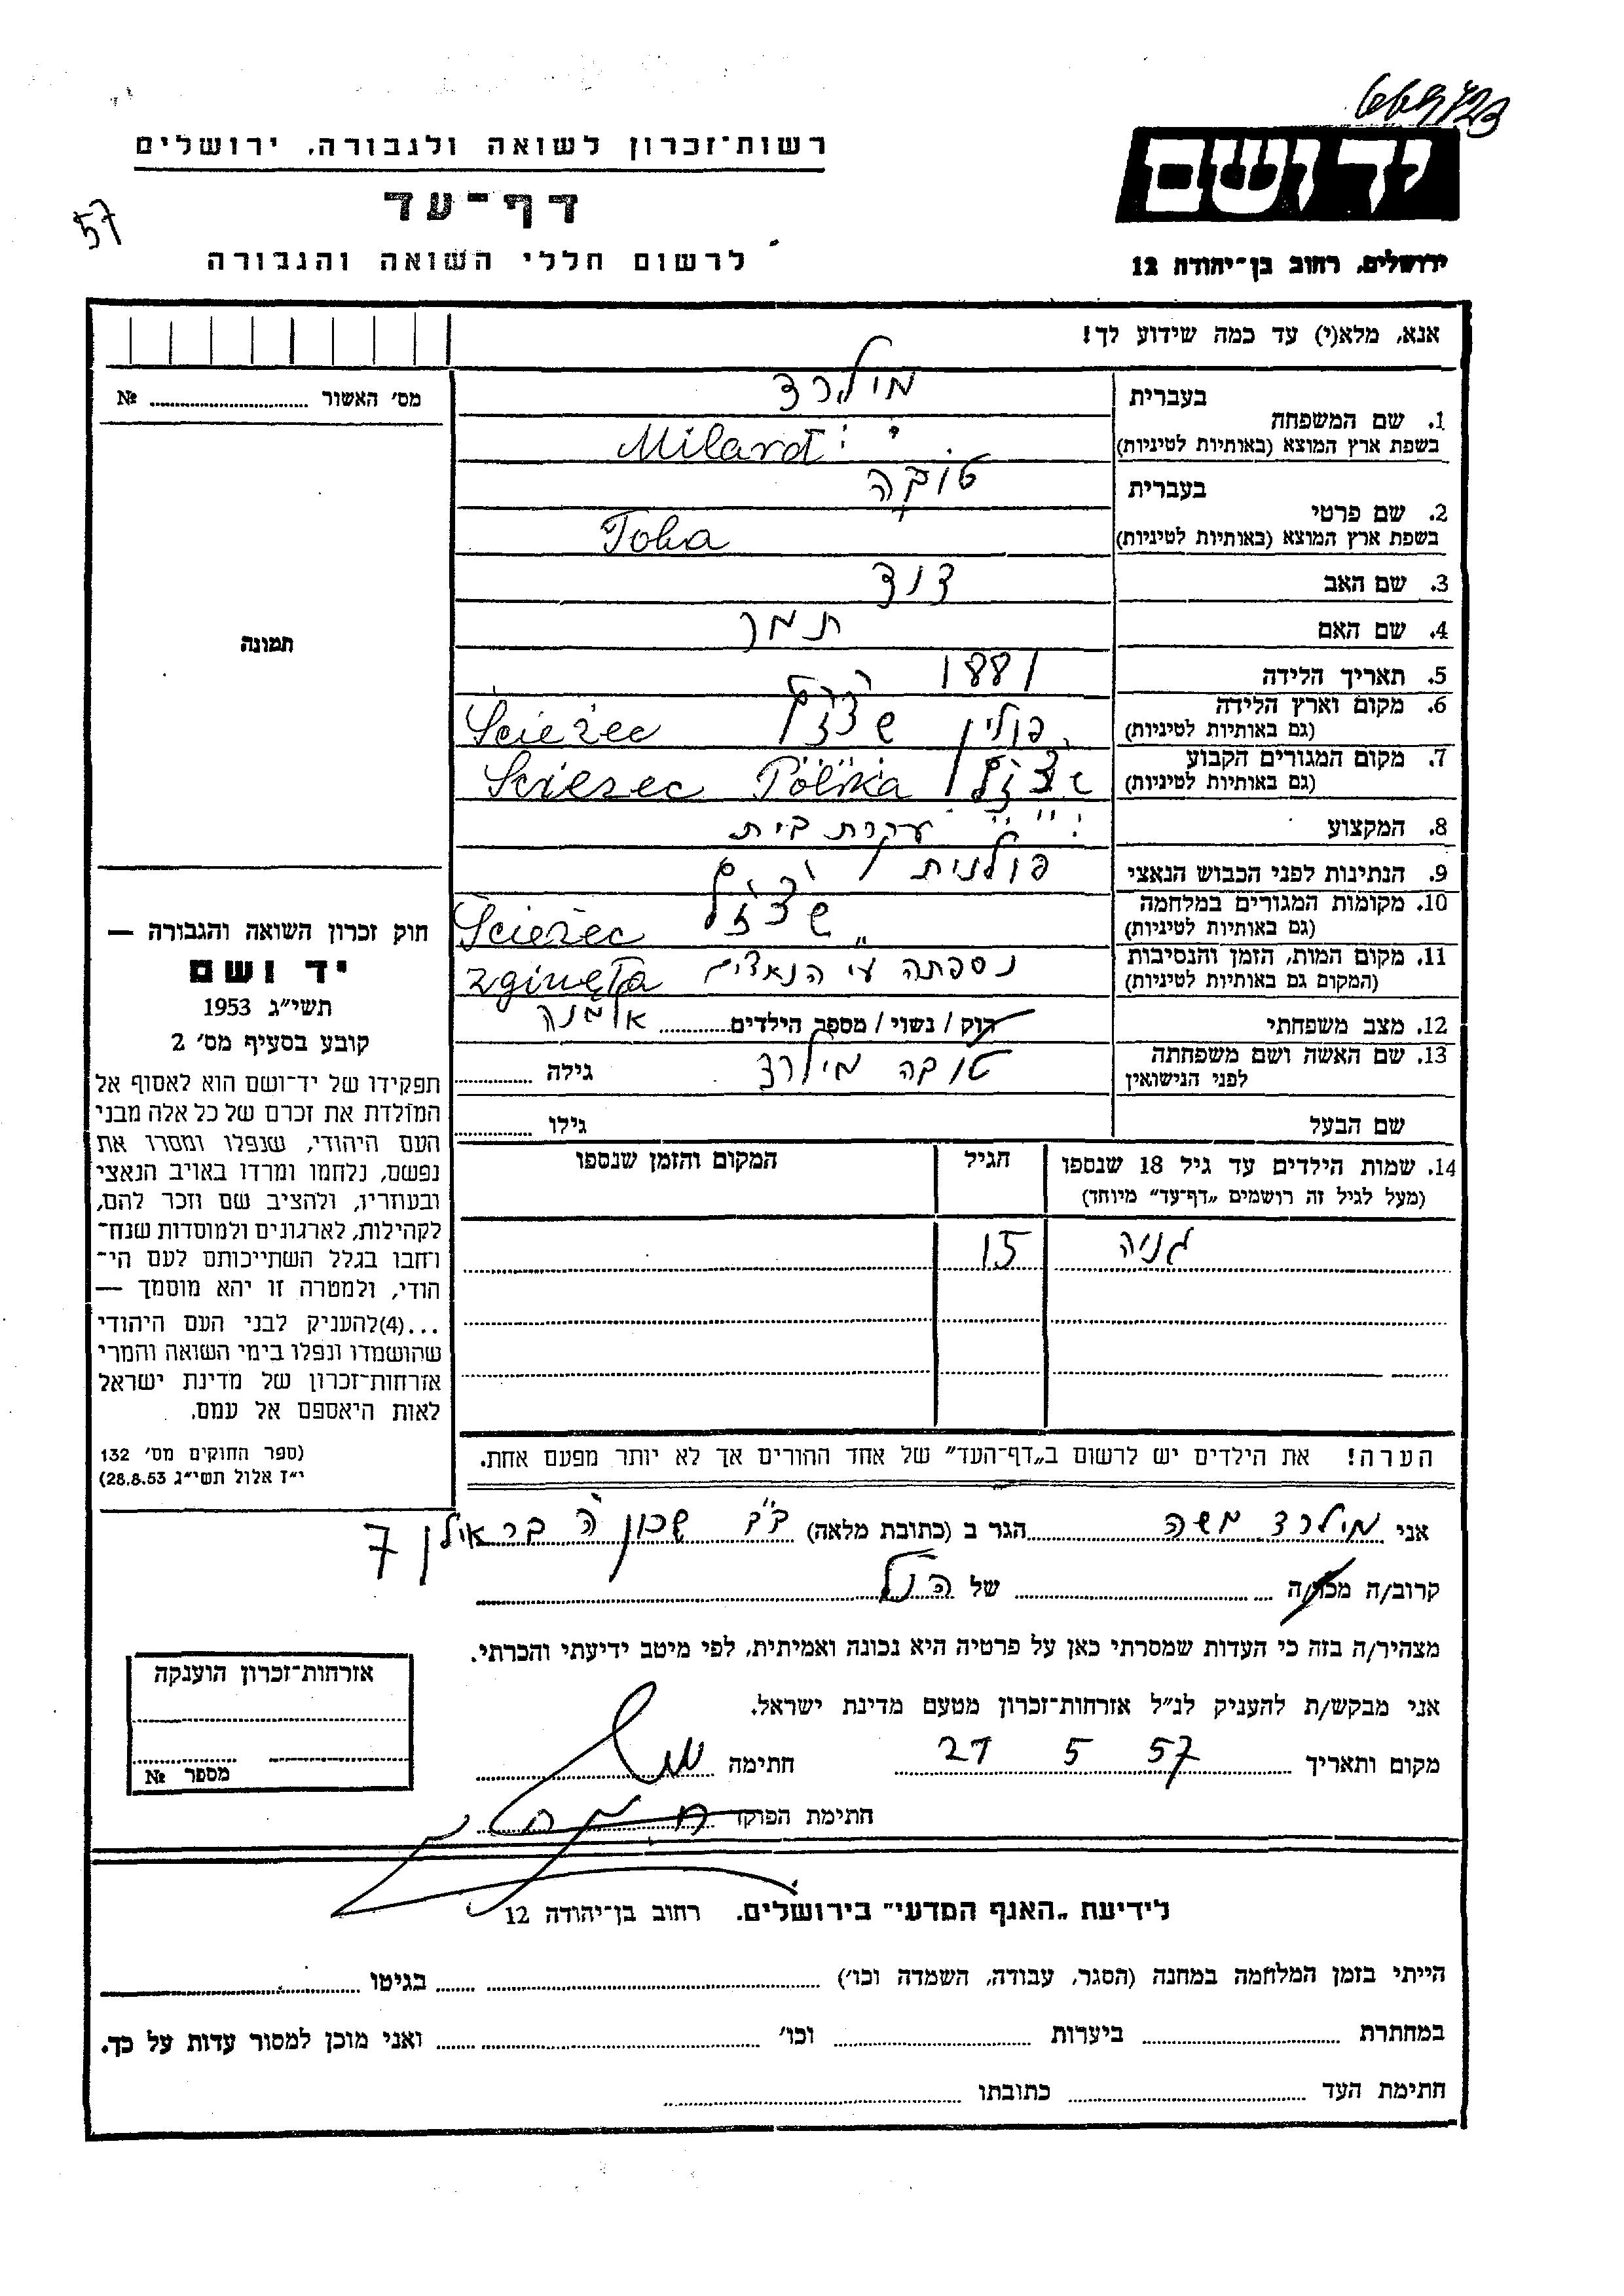 666723
רשות־זכרון לשואה ולגבורה, ירושלים
יד ושם
דף־עד
57
לרשום חללי השואה והגבורה
ירושלים, רחוב בן־יהודה 12
אנא, מלא(י) עד כמה שידוע לך!
מס׳ האשור № 
בעברית מילרד
1. שם המשפחה
בשפת ארץ המוצא (באותיות לטיניות) Milard
בעברית טובה
2. שם פרטי
בשפת ארץ המוצא (באותיות לטיניות) Toba
3. שם האב דוד
4. שם האם תמר
תמונה
5. תאריך הלידה 1881
6. מקום וארץ הלידה
(גם באותיות לטיניות) פוליןŚcieżec
7. מקום המגורים הקבוע
(גם באותיות לטיניות) Scierzec Polska
8. המקצוע עקרת בית
9. הנתינות לפני הכבוש הנאצי פולנית
10. מקומות המגורים במלחמה
(גם באותיות לטיניות) Ścieżec
11. מקום המות, הזמן והנסיבות
(המקום גם באותיות לטיניות) נספתה ע״י הנאצים zginęła
12. מצב משפחתי רוק / נשוי / מספר הילדים אלמנה
13. שם האשה ושם משפחתה
לפני הנישואין טובה מילרד גילה
שם הבעל גילו
14. שמות הילדים עד גיל 18 שנספו הגיל המקום והזמן שנספו
(מעל לגיל זה רושמים „דף־עד״ מיוחד)
גניה 15
חוק זכרון השואה והגבורה —
יד ושם
תשי״ג 1953
קובע בסעיף מס׳ 2
תפקידו של יד־ושם הוא לאסוף אל
המולדת את זכרם של כל אלה מבני
העם היהודי, שנפלו ומסרו את
נפשם, נלחמו ומרדו באויב הנאצי
ובעוזריו, ולהציב שם וזכר להם,
לקהילות, לארגונים ולמוסדות שנח־
רחבו בגלל השתייכותם לעם הי־
הודי, ולמטרה זו יהא מוסמך —
...(4)להעניק לבני העם היהודי
שהושמדו ונפלו בימי השואה והמרי
אזרחות־זכרון של מדינת ישראל
לאות היאספם אל עמם.
(ספר החוקים מס׳ 132
י״ז אלול תשי״ג 28.8.53)
הערה! את הילדים יש לרשום ב„דף־העד״ של אחד ההורים אך לא יותר מפעם אחת.
אני מילרד משה הגר ב (כתובת מלאה) ב״ב שכון ה׳ בר אילן 7
קרוב/ה מכר/ה של הנ״ל
מצהיר/ה בזה כי העדות שמסרתי כאן על פרטיה היא נכונה ואמיתית, לפי מיטב ידיעתי והכרתי.
אני מבקש/ת להעניק לנ״ל אזרחות־זכרון מטעם מדינת ישראל.
מקום ותאריך 21 5 57 חתימה
חתימת הפוקד
אזרחות־זכרון הוענקה
מספר №
לידיעת „האגף המדעי״ בירושלים. רחוב בן־יהודה 12
הייתי בזמן המלחמה במחנה (הסגר, עבודה, השמדה וכו׳) בגיטו
במחתרת ביערות וכו׳ ואני מוכן למסור עדות על כך.
חתימת העד כתובתו